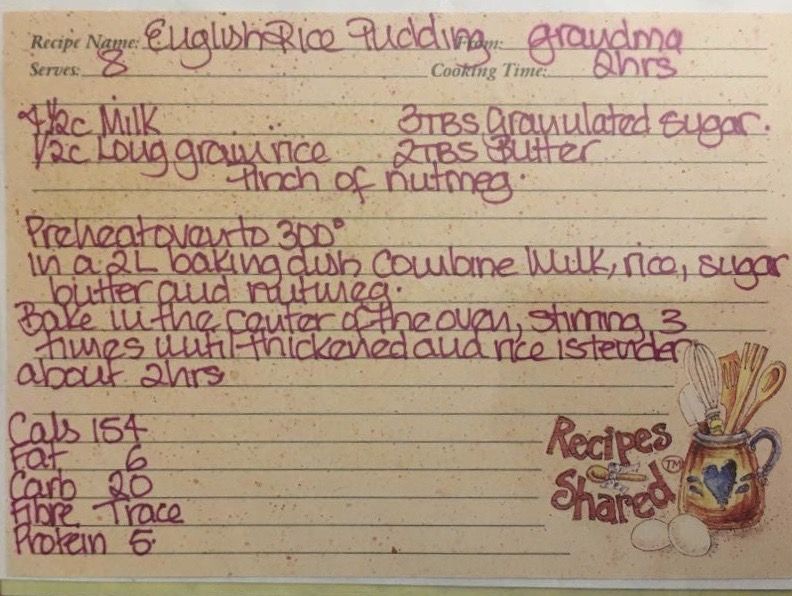 Recipe Name: English Rice Pudding From: grandma
Serves: 8 Cooking Time: 2hrs
4 1/2c Milk 3TBS Granulated sugar.
1/2c Long grain rice 2TBS Butter
Pinch of nutmeg.
Preheat oven to 300°
In a 2L baking dish combine Milk, rice, sugar
butter and nutmeg.
Bake in the center of the oven, stirring 3
times until thickened and rice is tender
about 2hrs
Cals 154
Fat 6
Carb 20
Fibre Trace
Protein 5.
Recipes
Shared™